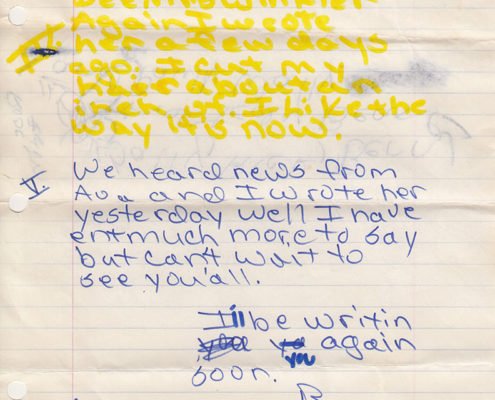 Again I wrote
IV. her a few days
ago. I cut my
hair about an
inch I like the
way it is now.
V. We heard news from
and I wrote her
yesterday well I have
entmuch more to say
but can't wait to
see you'all.
I'll be writin
you again
soon.